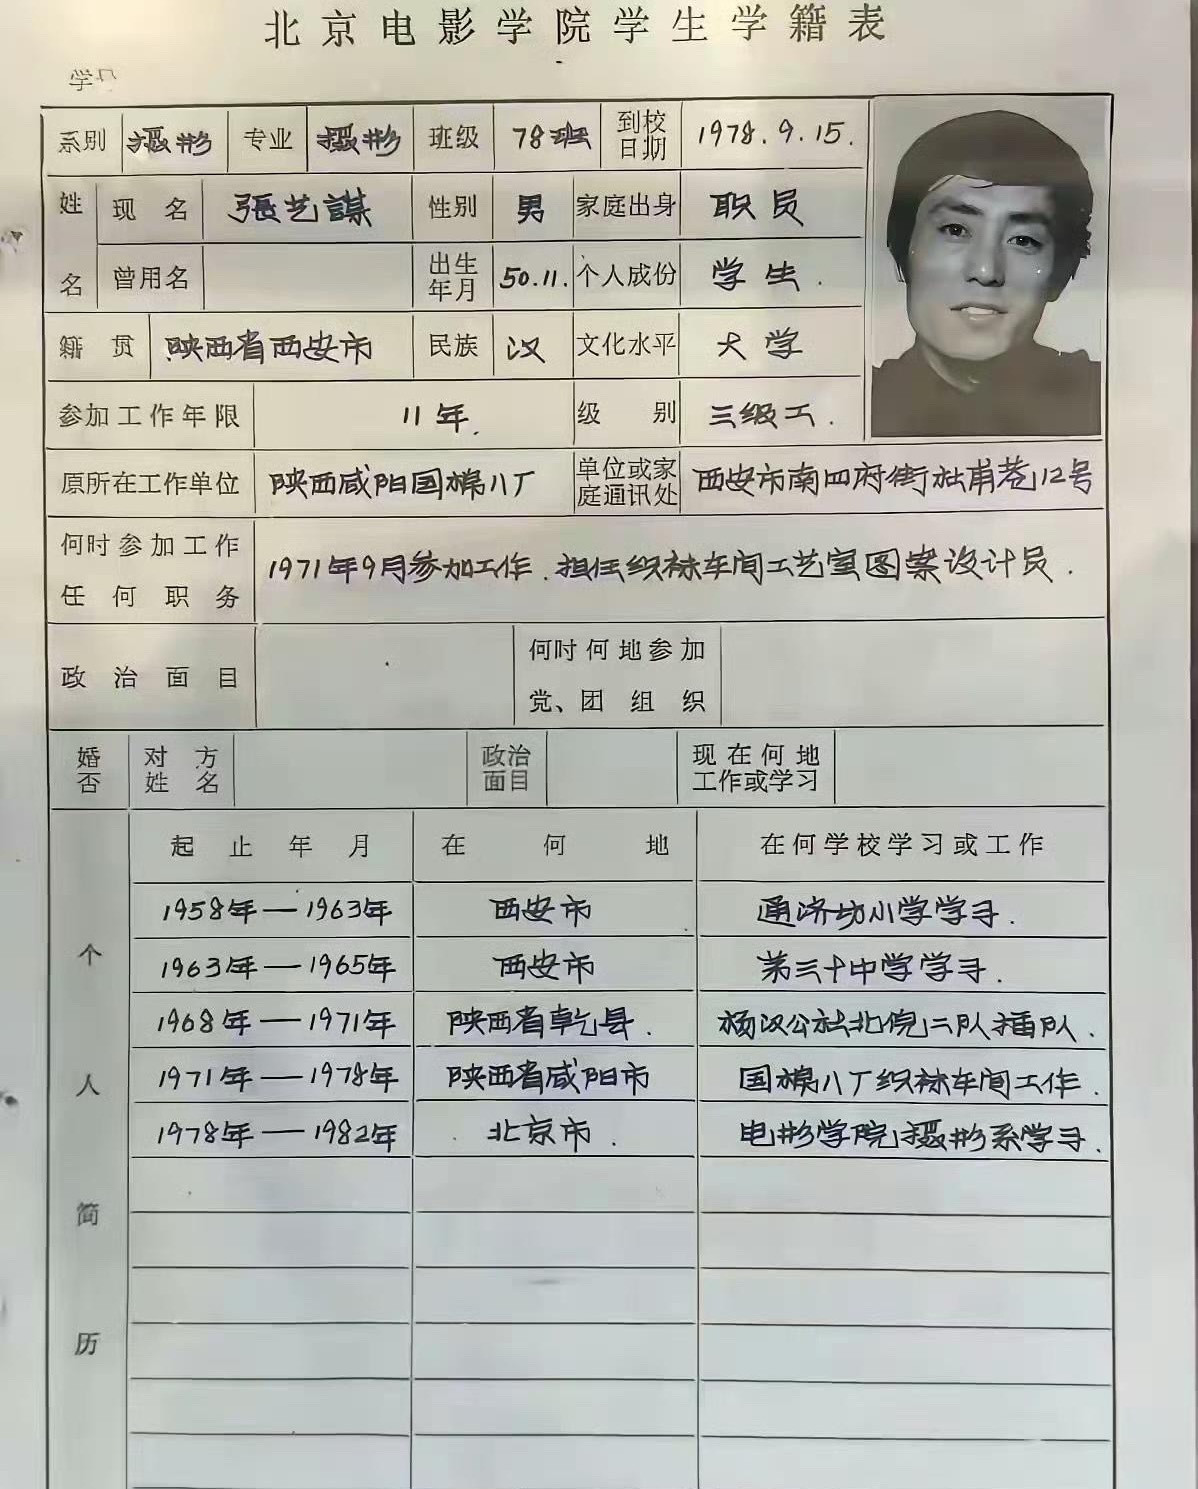 北京电影学院学生学籍表
学号
系别 摄影 专业 摄影 班级 78班 到校日期 1978.9.15.
姓名 现名 張艺謀 性别 男 家庭出身 职员
曾用名 出生年月 50.11. 个人成份 学生.
籍贯 陕西省西安市 民族 汉 文化水平 大学
参加工作年限 11年. 级别 三级工.
原所在工作单位 陕西咸阳国棉八厂 单位或家庭通讯处 西安市南四府街社甫巷112号
何时参加工作任何职务 1971年9月参加工作.担任织袜车间工艺室图案设计员.
政治面目 何时何地参加党、团组织
婚否 对方姓名 政治面目 现在何地工作或学习
个人简历 起止年月 在何地 在何学校学习或工作
1958年—1963年 西安市 通济坊小学学习.
1963年—1965年 西安市 第三十中学学习.
1968年—1971年 陕西省乾县. 杨汉公社北倪二队插队.
1971年—1978年 陕西省咸阳市 国棉八厂织袜车间工作.
1978年—1982年 北京市. 电影学院摄影系学习.